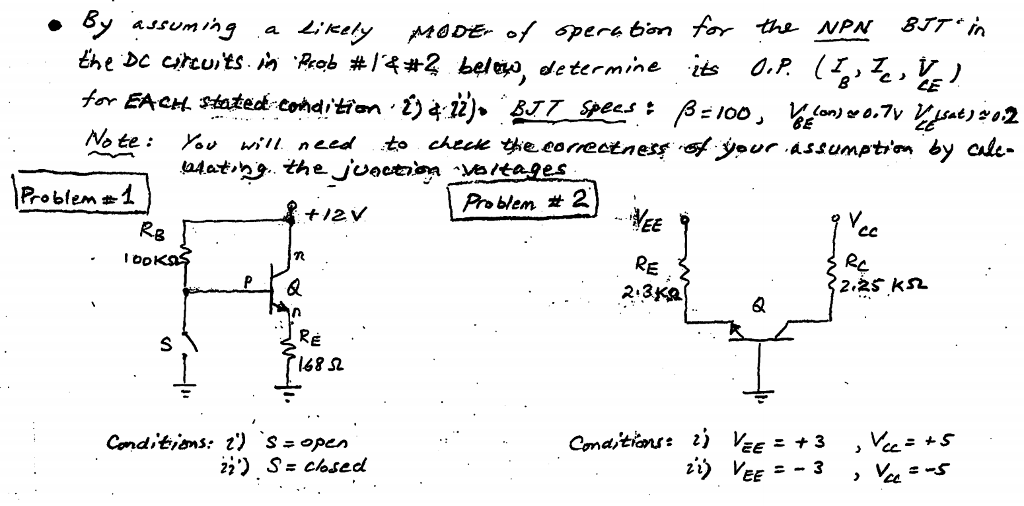 • By assuming a likely MODE of operation for the NPN BJT in
the DC circuits in Prob #1 & #2 below, determine its O.P. (I_B, I_C, V_CE)
for EACH stated condition i) & ii). BJT Specs: β=100, V_BE(on)≈0.7V V_CE(sat)≈0.2
Note: You will need to check the correctness of your assumption by calc-
ulating the junction voltages
Problem #1
Problem #2
+12V
R_B
100KΩ
P
n
Q
n
S
R_E
168 Ω
V_EE
V_CC
R_E
2.3KΩ
R_C
2.25 KΩ
Q
Conditions: i) S = open
ii) S = closed
Conditions: i) V_EE = +3 , V_CC = +5
ii) V_EE = -3 , V_CC = -5